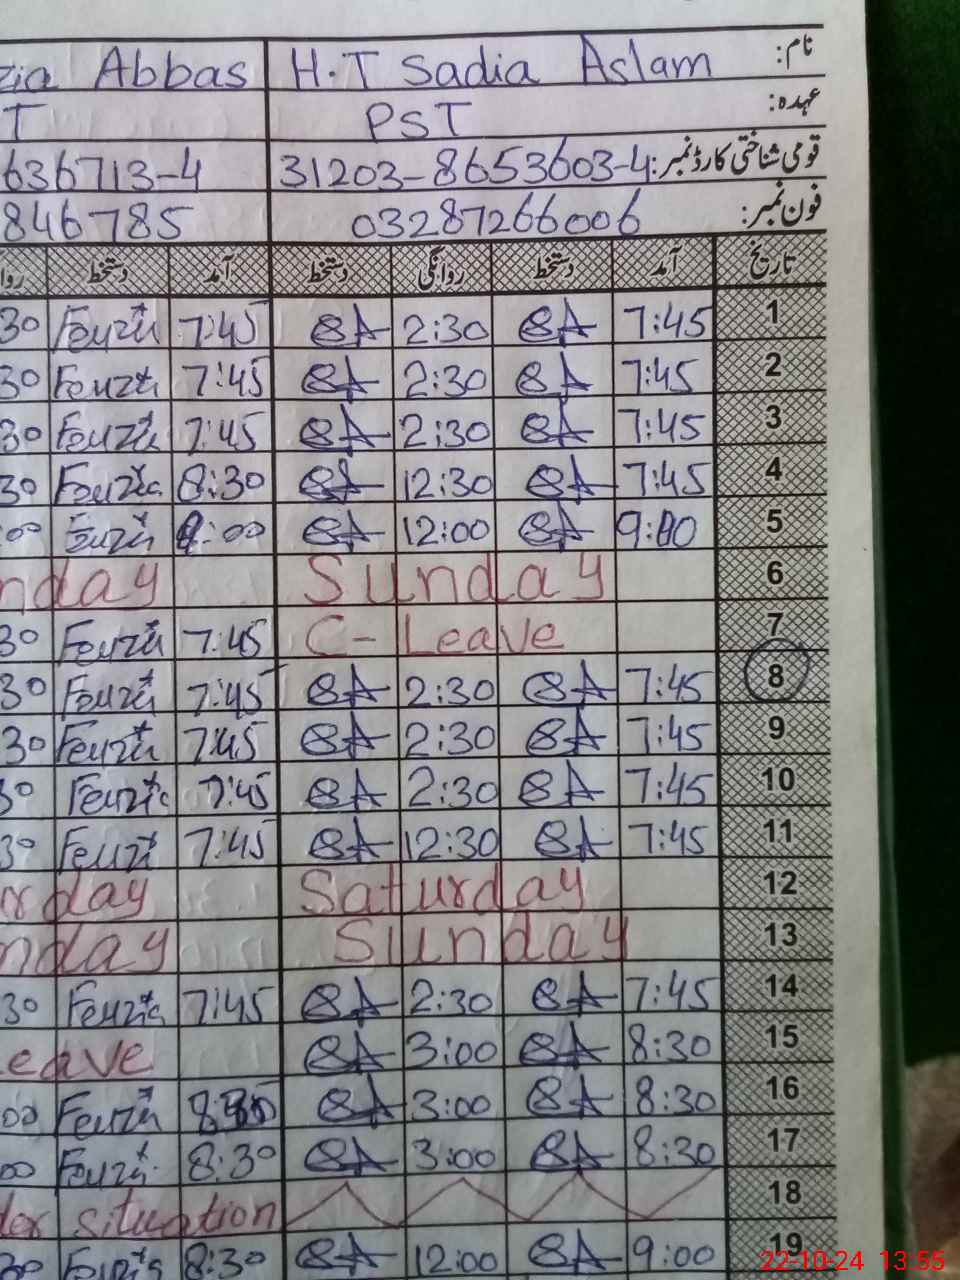 zia Abbas H.T Sadia Aslam نام:
T PST عہدہ:
636713-4 31203-8653603-4 قومی شناختی کارڈ نمبر:
846785 03287266006 فون نمبر:
روا دستخط آمد دستخط روانگی دستخط آمد تاریخ
30 Fouzia 7:45 SA 2:30 SA 7:45 1
30 Fouzia 7:45 SA 2:30 SA 7:45 2
30 Fouzia 7:45 SA 2:30 SA 7:45 3
30 Fouzia 8:30 SA 12:30 SA 7:45 4
:00 Fouzia :00 SA 12:00 SA 9:00 5
nday Sunday 6
30 Fouzia 7:45 C-Leave 7
30 Fouzia 7:45 SA 2:30 SA 7:45 8
30 Fouzia 7:45 SA 2:30 SA 7:45 9
30 Fouzia 7:45 SA 2:30 SA 7:45 10
30 Fouzia 7:45 SA 12:30 SA 7:45 11
rday Saturday 12
nday Sunday 13
30 Fouzia 7:45 SA 2:30 SA 7:45 14
eave SA 3:00 SA 8:30 15
00 Fouzia SA 3:00 SA 8:30 16
00 Fouzia 8:30 SA 3:00 SA 8:30 17
der situation 18
30 Fouzia 8:30 SA 12:00 SA 9:00 19
22-10-24 13:55